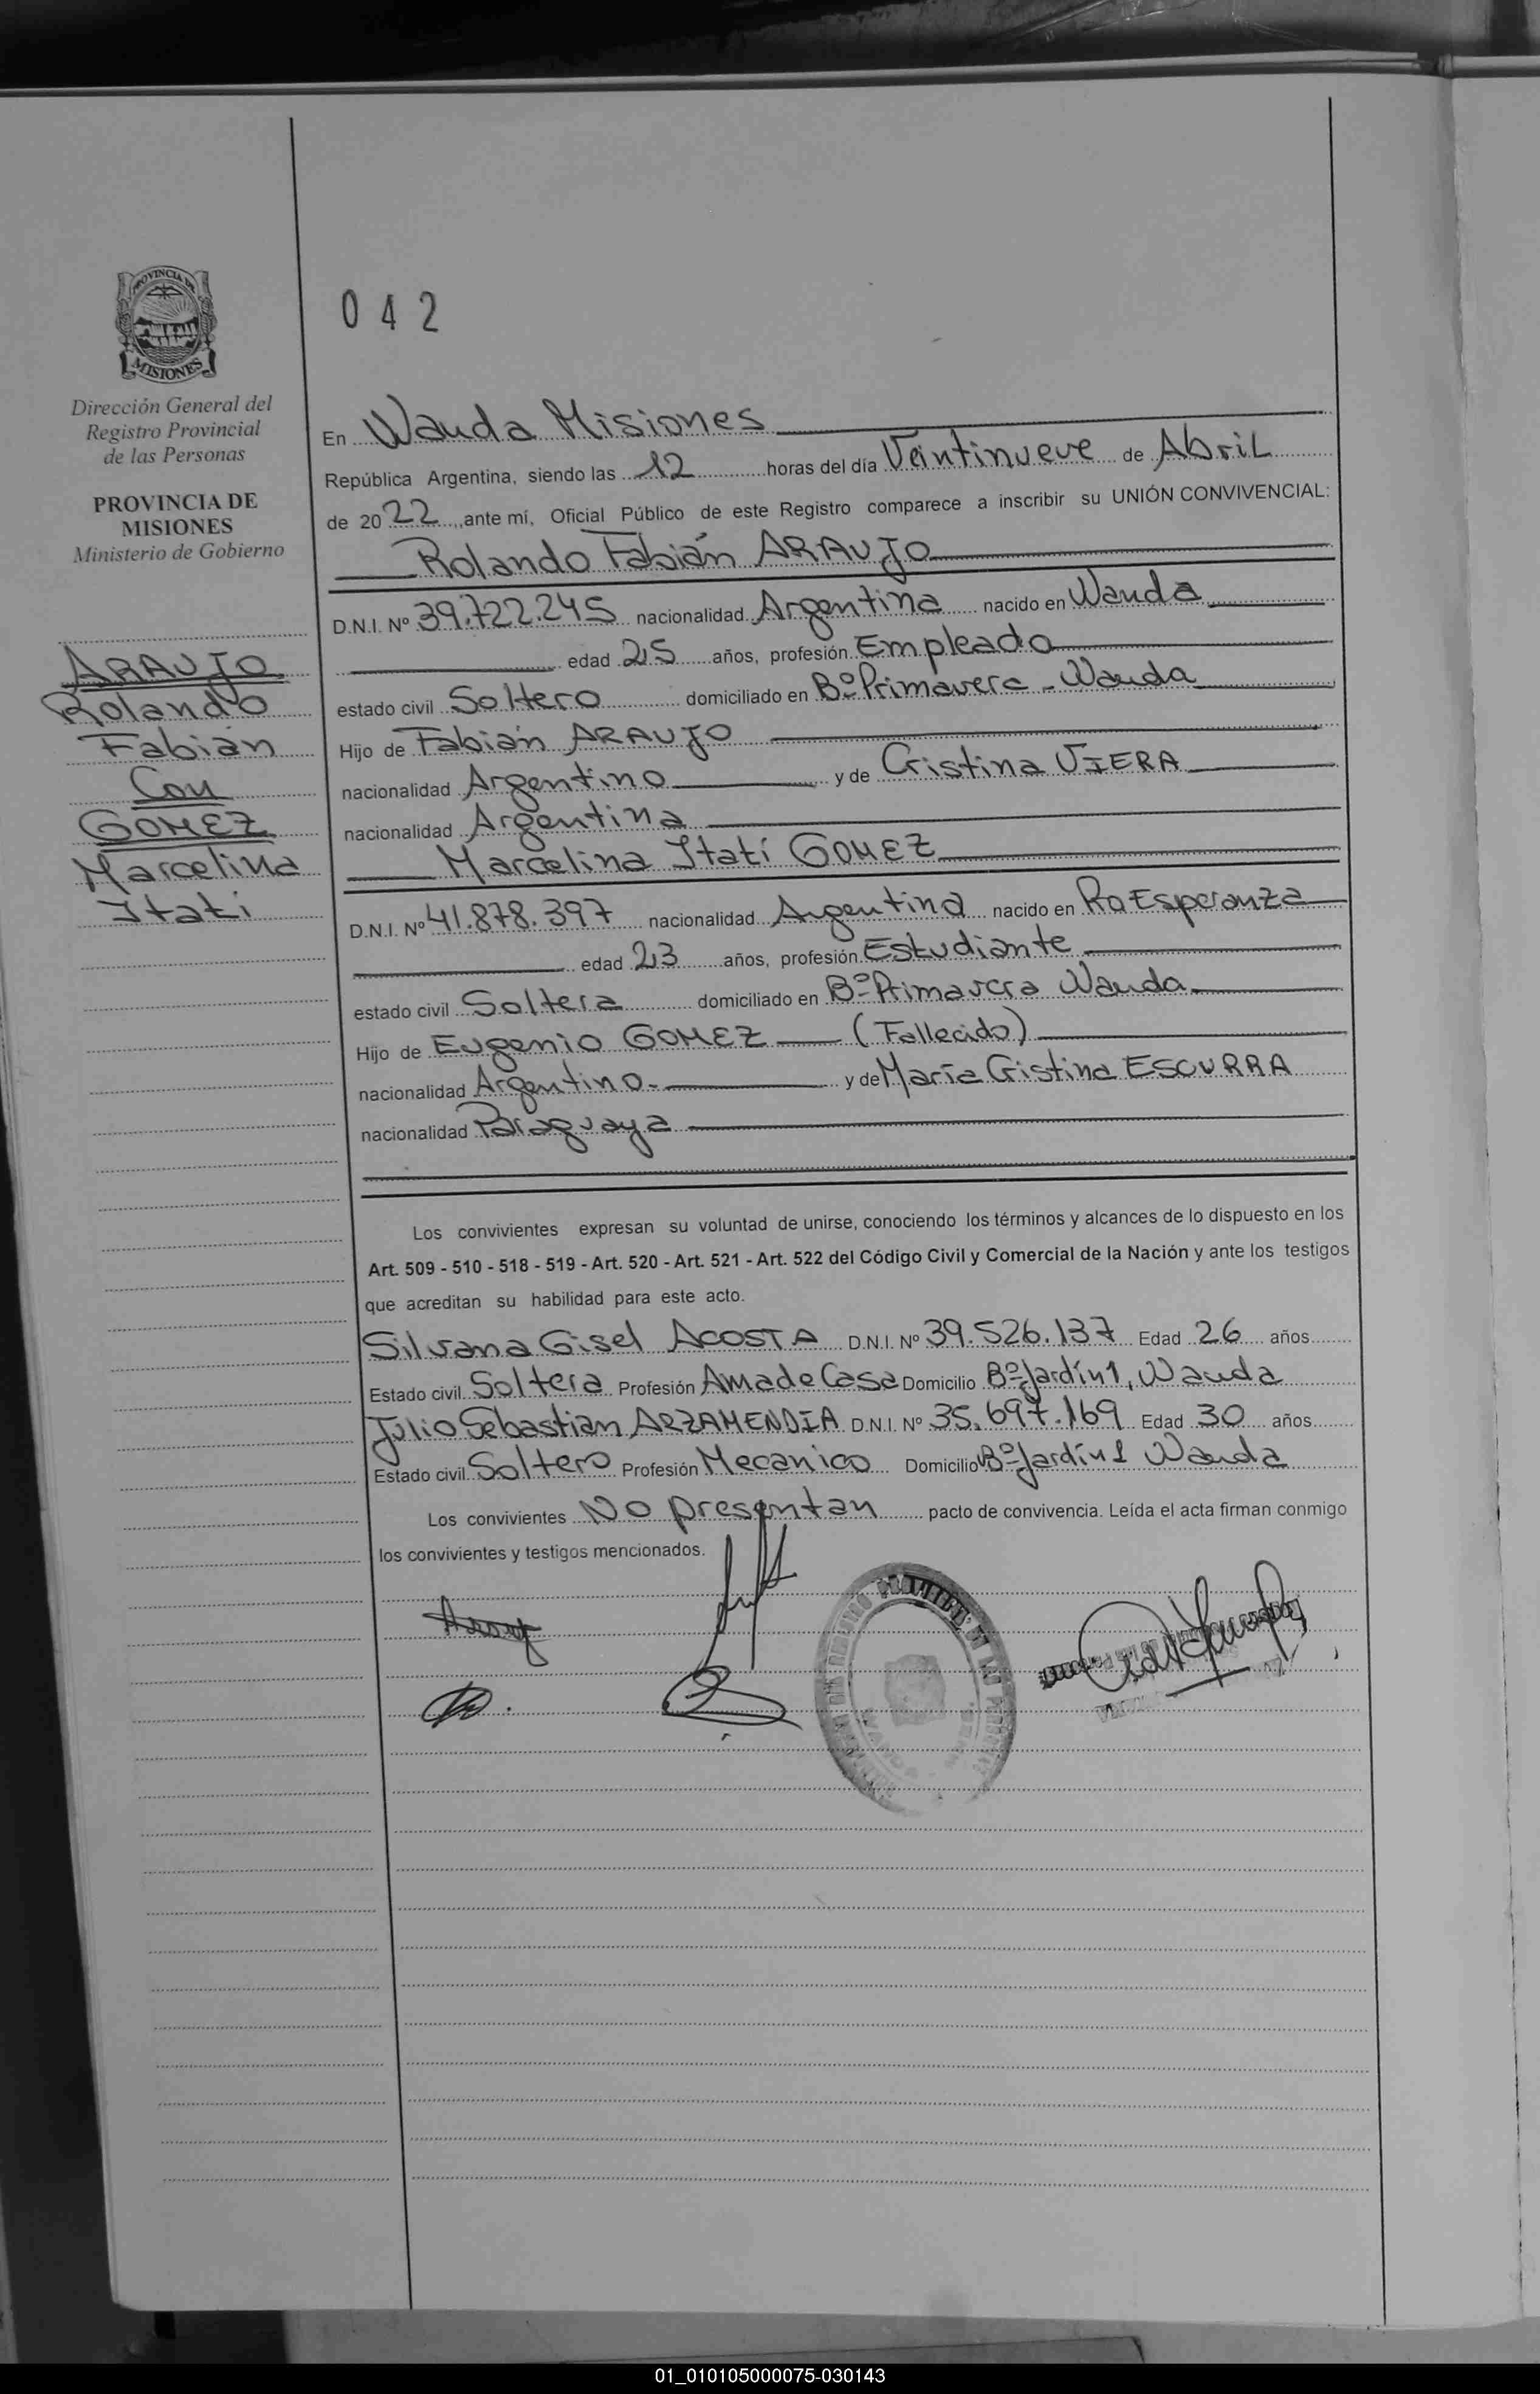 PROVINCIA DE
MISIONES
Dirección General del
Registro Provincial
de las Personas
PROVINCIA DE
MISIONES
Ministerio de Gobierno
ARAUJO
Rolando
Fabián
Con
GOMEZ
Marcelina
Itatí
042
En Wanda Misiones
República Argentina, siendo las 12 horas del día Veintinueve de Abril
de 2022, ante mí, Oficial Público de este Registro comparece a inscribir su UNIÓN CONVIVENCIAL:
Rolando Fabián ARAUJO
D.N.I. Nº 39.722.245 nacionalidad Argentina nacido en Wanda
edad 25 años, profesión Empleado
estado civil Soltero domiciliado en Bº Primavera - Wanda
Hijo de Fabián ARAUJO
nacionalidad Argentino y de Cristina VIERA
nacionalidad Argentina
Marcelina Itatí GOMEZ
D.N.I. Nº 41.878.397 nacionalidad Argentina nacido en Pto Esperanza
edad 23 años, profesión Estudiante
estado civil Soltera domiciliado en Bº Primavera Wanda
Hijo de Eugenio GOMEZ (Fallecido)
nacionalidad Argentino y de María Cristina ESCURRA
nacionalidad Paraguaya
Los convivientes expresan su voluntad de unirse, conociendo los términos y alcances de lo dispuesto en los
Art. 509 - 510 - 518 - 519 - Art. 520 - Art. 521 - Art. 522 del Código Civil y Comercial de la Nación y ante los testigos
que acreditan su habilidad para este acto.
Silvana Gisel ACOSTA D.N.I. Nº 39.526.137 Edad 26 años
Estado civil Soltera Profesión Ama de Casa Domicilio Bº Jardín 1, Wanda
Julio Sebastian ARZAMENDIA D.N.I. Nº 35.697.169 Edad 30 años
Estado civil Soltero Profesión Mecanico Domicilio Bº Jardín 1 Wanda
Los convivientes No presentan pacto de convivencia. Leída el acta firman conmigo
los convivientes y testigos mencionados.
01_010105000075-030143